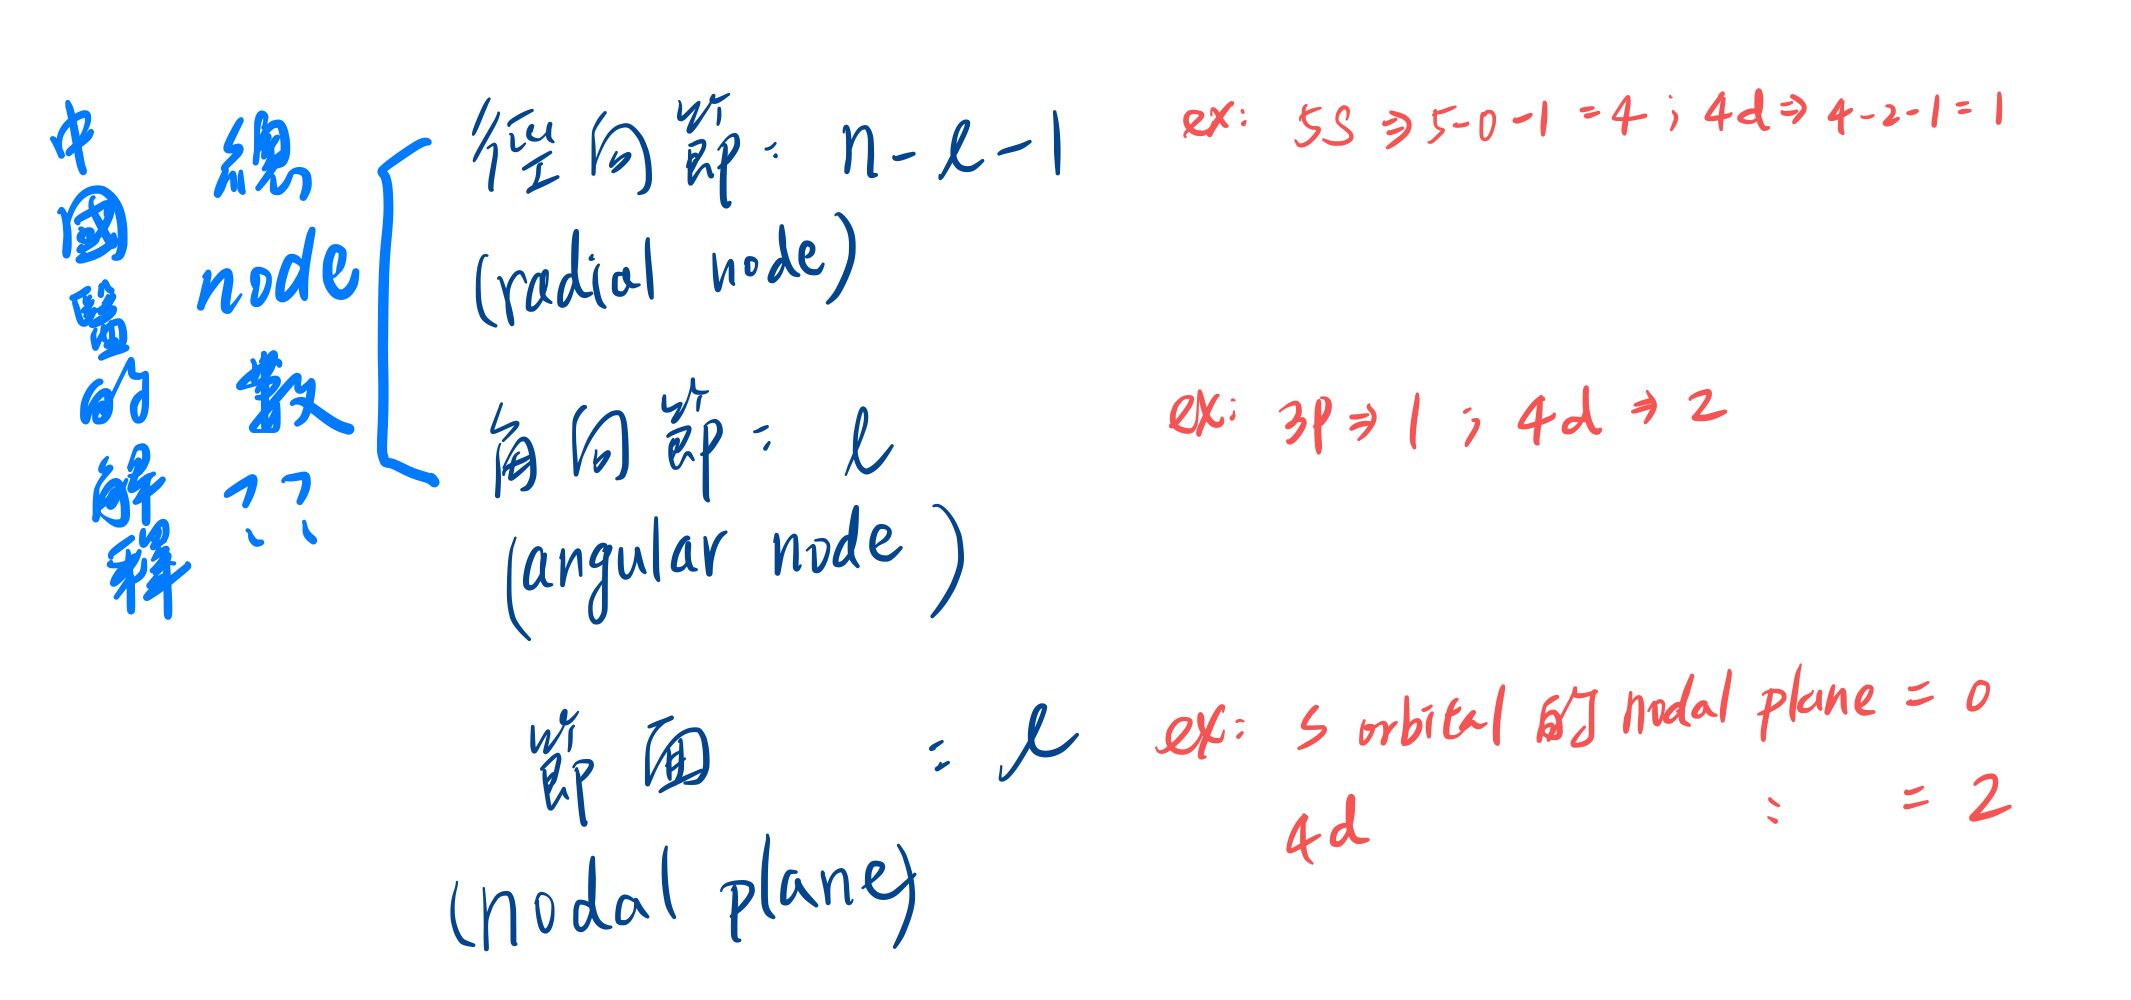 中國醫的解釋
總node數??
徑向節: n-l-1
(radial node)
ex: 5s⇒5-0-1=4; 4d⇒4-2-1=1
角向節: l
(angular node)
ex: 3p⇒1; 4d⇒2
節面 : l
(nodal plane)
ex: s orbital 的 nodal plane = 0
4d : = 2